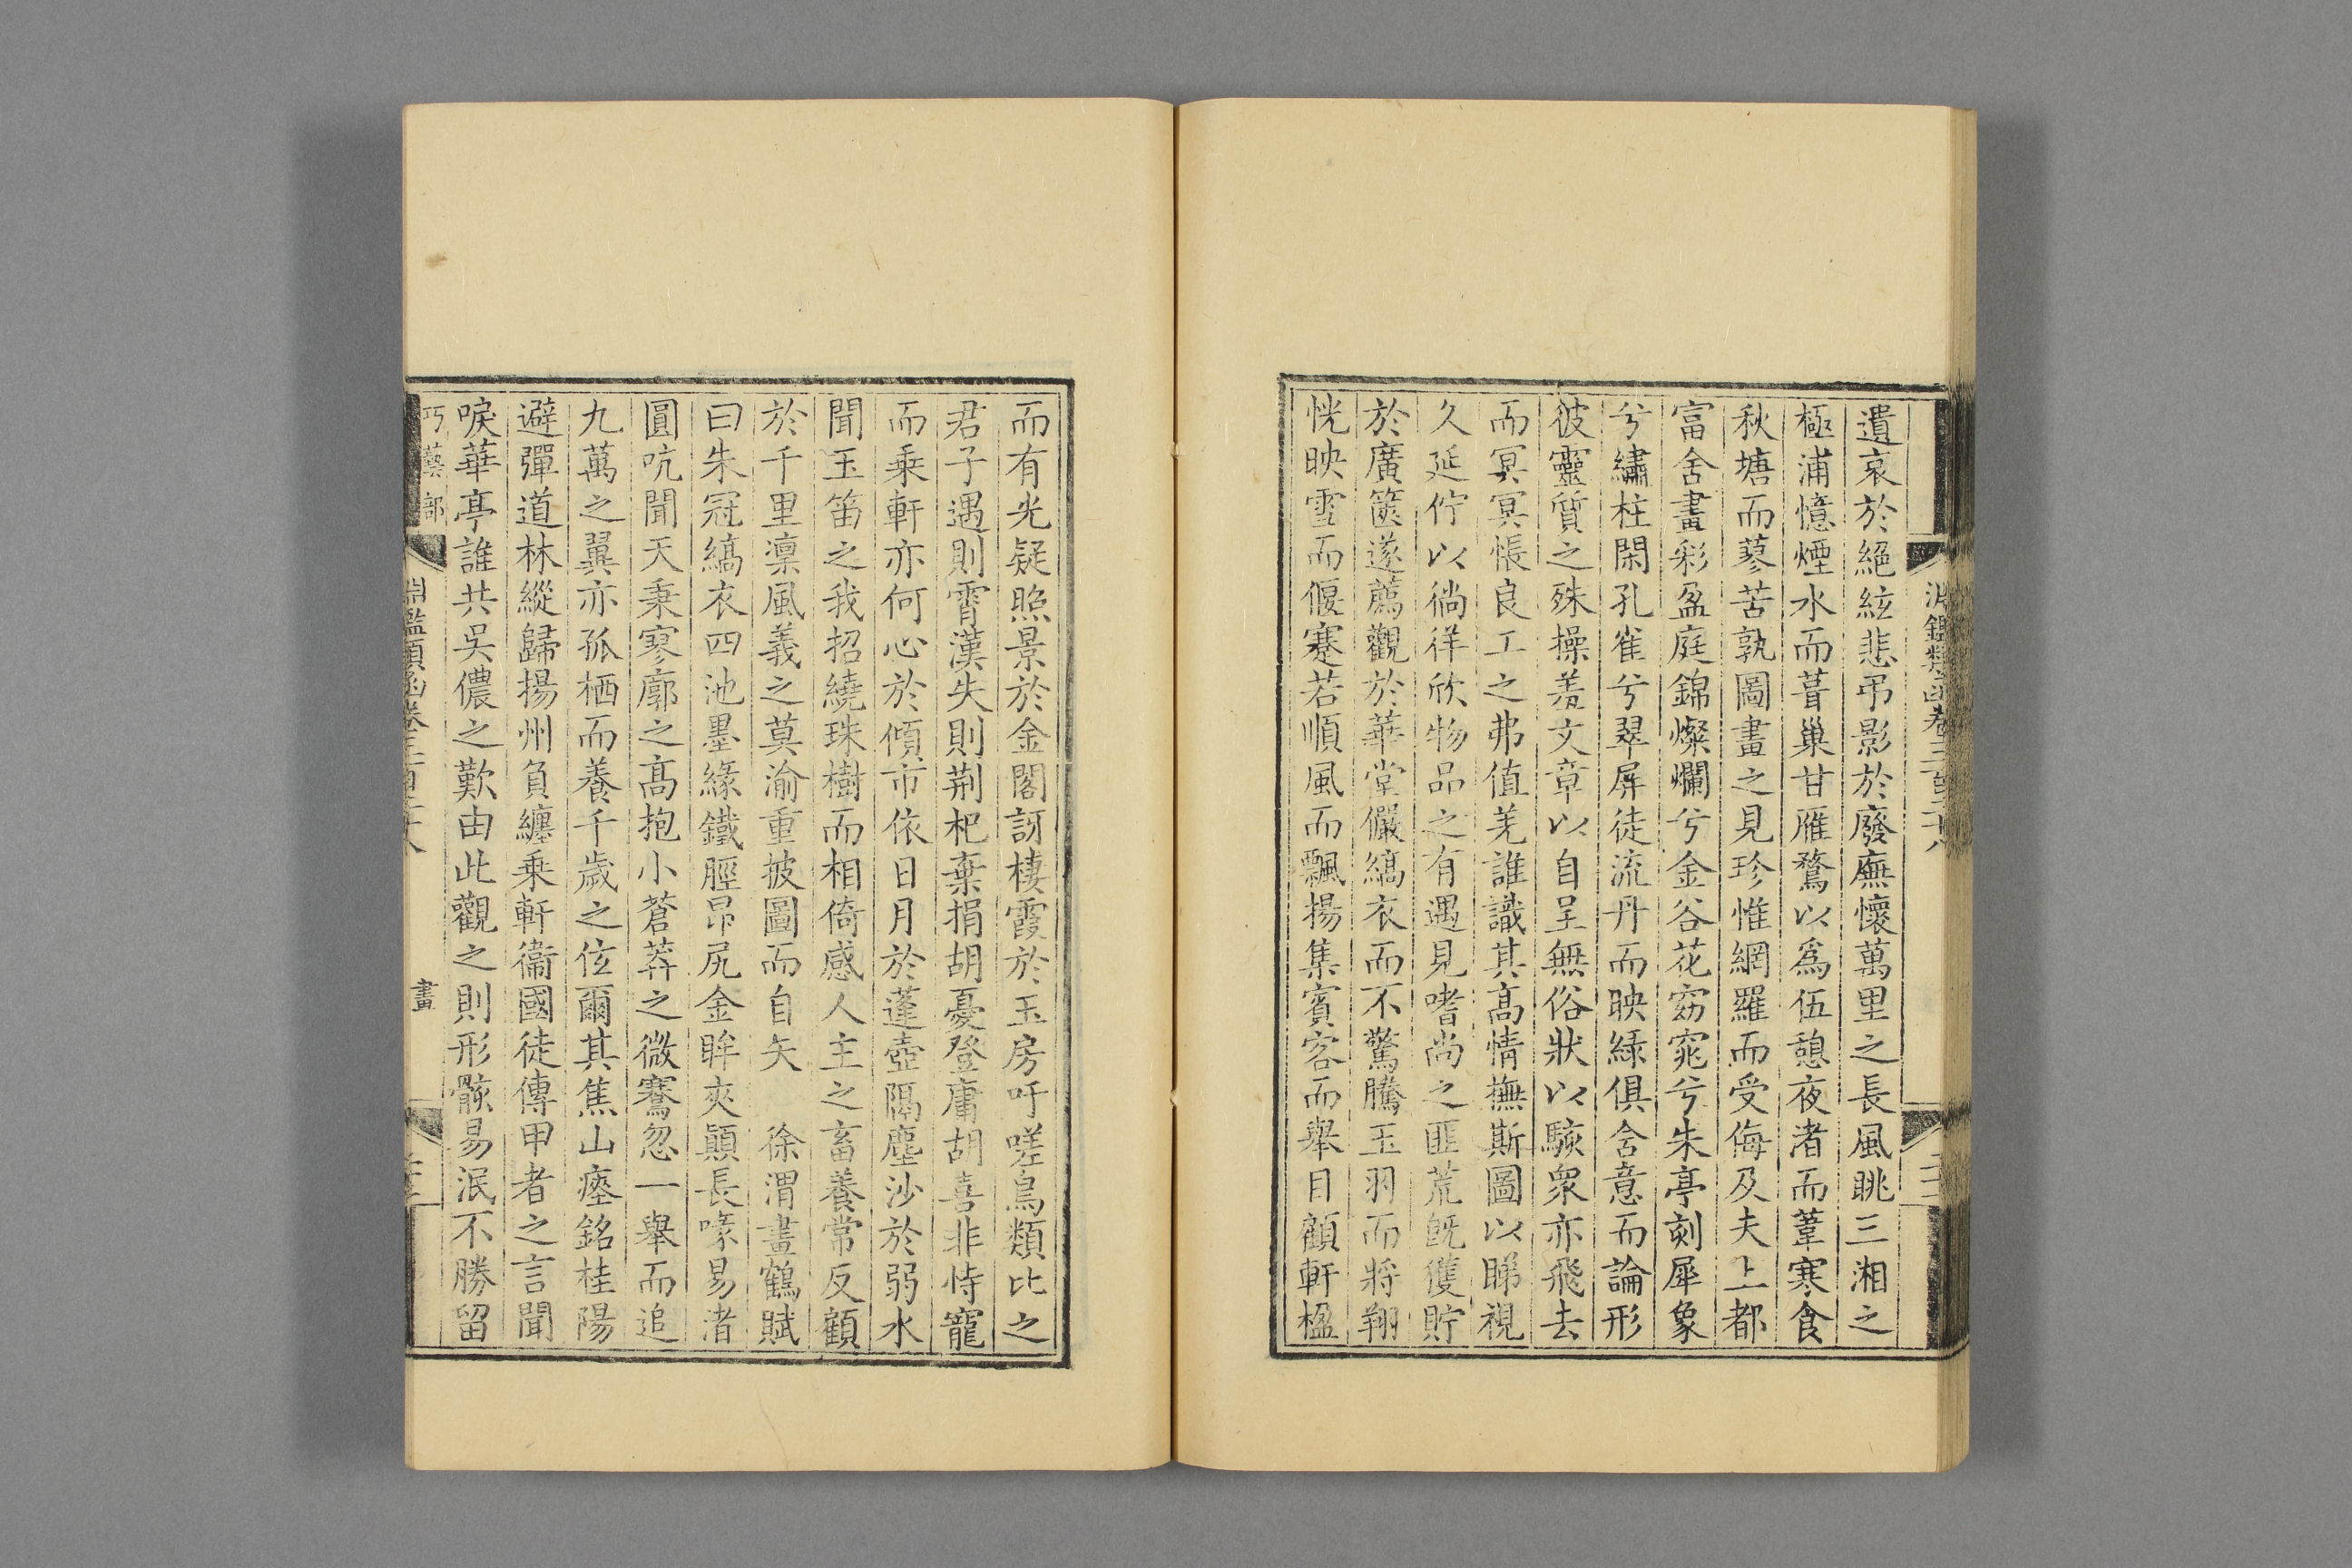 遺哀於絕絃悲弔影於廢廡懷萬里之長風眺三湘之
極浦憶煙水而暮巢甘雁鶩以爲伍憩夜渚而葦寒食
秋塘而蓼苦孰圖畫之見珍惟網羅而受侮及夫上都
富舍畫彩盈庭錦燦爛兮金谷花窈窕兮朱亭刻犀象
兮繡柱閑孔雀兮翠屏徒流丹而映緑俱舍意而論形
彼靈質之殊操羌文章以自呈無俗狀以駭衆亦飛去
而冥冥悵良工之弗值羌誰識其高情撫斯圖以睇視
久延佇以徜徉欣物品之有遇見嗜尚之匪荒旣獲貯
於廣篋遂薦觀於華堂儼縞衣而不驚騰玉羽而將翔
恍映雪而偃蹇若順風而飄揚集賓客而舉目顧軒楹
而有光疑照景於金閣訝棲霞於玉房吁嗟鳥類比之
君子遇則霄漢失則荆杞棄捐胡憂登庸胡喜非恃寵
而乘軒亦何心於傾市依日月於蓬壺隔塵沙於弱水
聞玉笛之我招繞珠樹而相倚感人主之畜養常反顧
於千里凛風義之莫渝重披圖而自矢　徐渭畫鶴賦
曰朱冠縞衣四池墨緣鐵脛昂尻金眸夾顚長喙易渚
圓吭聞天秉寥廓之高抱小蒼莽之微騫忽一舉而追
九萬之翼亦孤栖而養千歲之伭爾其焦山瘞銘桂陽
避彈道林縱歸揚州負纏乘軒衞國徒傳甲者之言聞
唳華亭誰共吳儂之歎由此觀之則形骸易泯不勝留
巧藝部
淵鑑類函卷三百二十八
畫